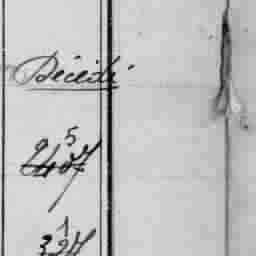 Décédé
5
247
1
327